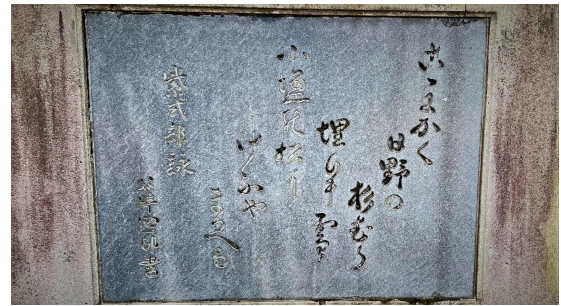 こゝにかく
日野の
杉むら
埋む雪
小塩の松に
けふや
まかへる
紫式部詠
書